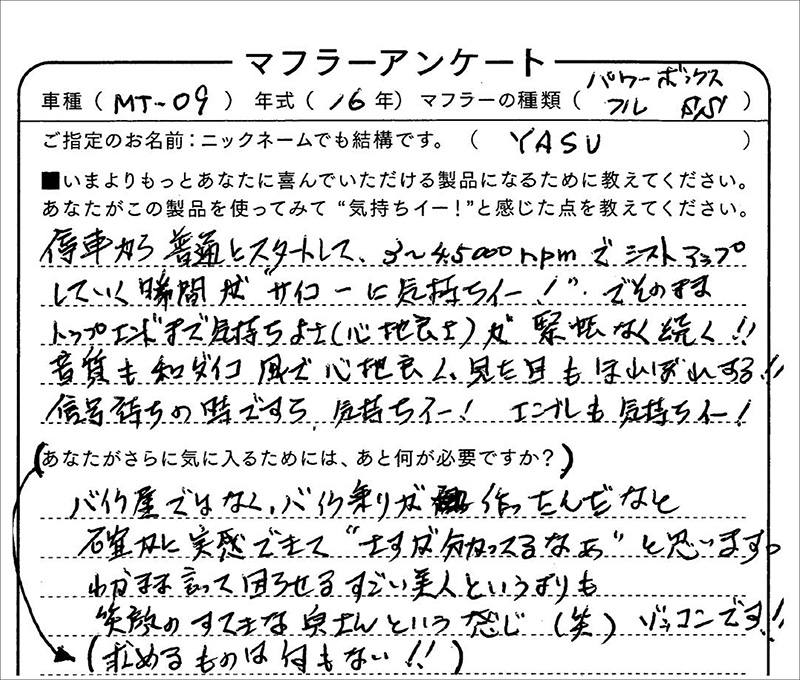 マフラーアンケート
車種（MT-09）年式（16年）マフラーの種類（パワーボックスフル SS）
ご指定のお名前：ニックネームでも結構です。（YASU）
■いまよりもっとあなたに喜んでいただける製品になるために教えてください。
あなたがこの製品を使ってみて“気持ちイー！”と感じた点を教えてください。
停車から普通にスタートして、3〜4.5000rpmでシフトアップ
していく瞬間が“サイコーに気持ちイー！”でそのまま
トップエンドまで気持ちよさ(心地良さ)が緊張なく続く!!
音質も和ダイコ風で心地良く、見た目もほれぼれする!!
信号待ちの時ですら、気持ちイー！エンブレも気持ちイー！
(あなたがさらに気に入るためには、あと何が必要ですか？)
バイク屋ではなく、バイク乗りが作ったんだなと
確かに実感できて“さすが分かってるなぁ”と思います。
わがまま言って困らせるすごい美人というよりも
笑顔のすてきな奥さんという感じ（笑）ゾッコンです!!
(求めるものは何もない!!)